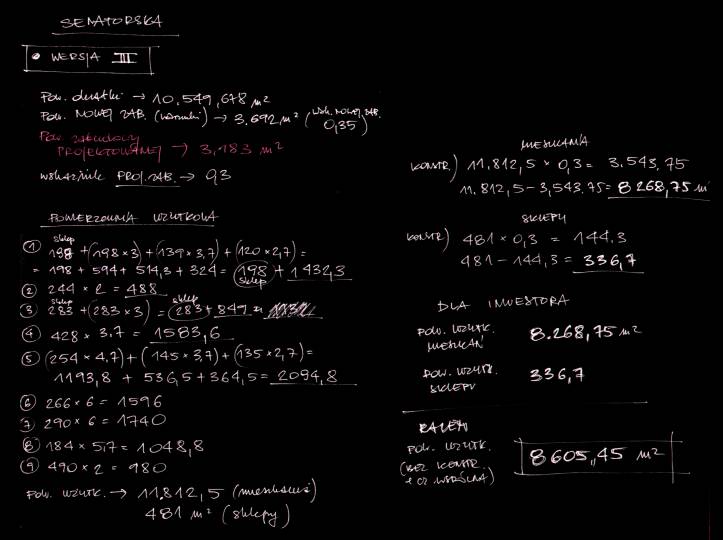 SENATORSKA
• WERSJA III
Pow. działki → 10.549,678 m²
Pow. NOWEJ ZAB. (warunki) → 3.692 m² (wsk. NOWEJ ZAB. 0,35)
Pow. zabudowy
PROJEKTOWANEJ → 3.183 m²
wskaźnik PROJ. ZAB. → 93
POWIERZCHNIA UŻYTKOWA
sklep
① 198 + (198 × 3) + (139 × 3,7) + (120 × 2,7) =
= 198 + 594 + 514,3 + 324 = 198 + 1432,3
sklep
② 244 × 2 = 488
sklep sklep
③ 283 + (283 × 3) = 283 + 849
④ 428 × 3,7 = 1583,6
⑤ (254 × 4,7) + (145 × 3,7) + (135 × 2,7) =
1193,8 + 536,5 + 364,5 = 2094,8
⑥ 266 × 6 = 1596
7 290 × 6 = 1740
⑧ 184 × 5,7 = 1048,8
⑨ 490 × 2 = 980
Pow. UŻYTK. → 11.812,5 (mieszkania)
481 m² (sklepy)
MIESZKANIA
KONSTR.) 11.812,5 × 0,3 = 3.543,75
11.812,5 – 3,543,75 = 8268,75 m
SKLEPY
KONSTR.) 481 × 0,3 = 144,3
481 – 144,3 = 336,7
DLA INWESTORA
POW. UŻYTK. 8.268,75 m²
MIESZKAŃ
POW. UŻYTK. 336,7
SKLEPU
RAZEM
POW. UŻYTK. 8605,45 m²
(BEZ KONSTR.
I CZ. WSPÓLNA)